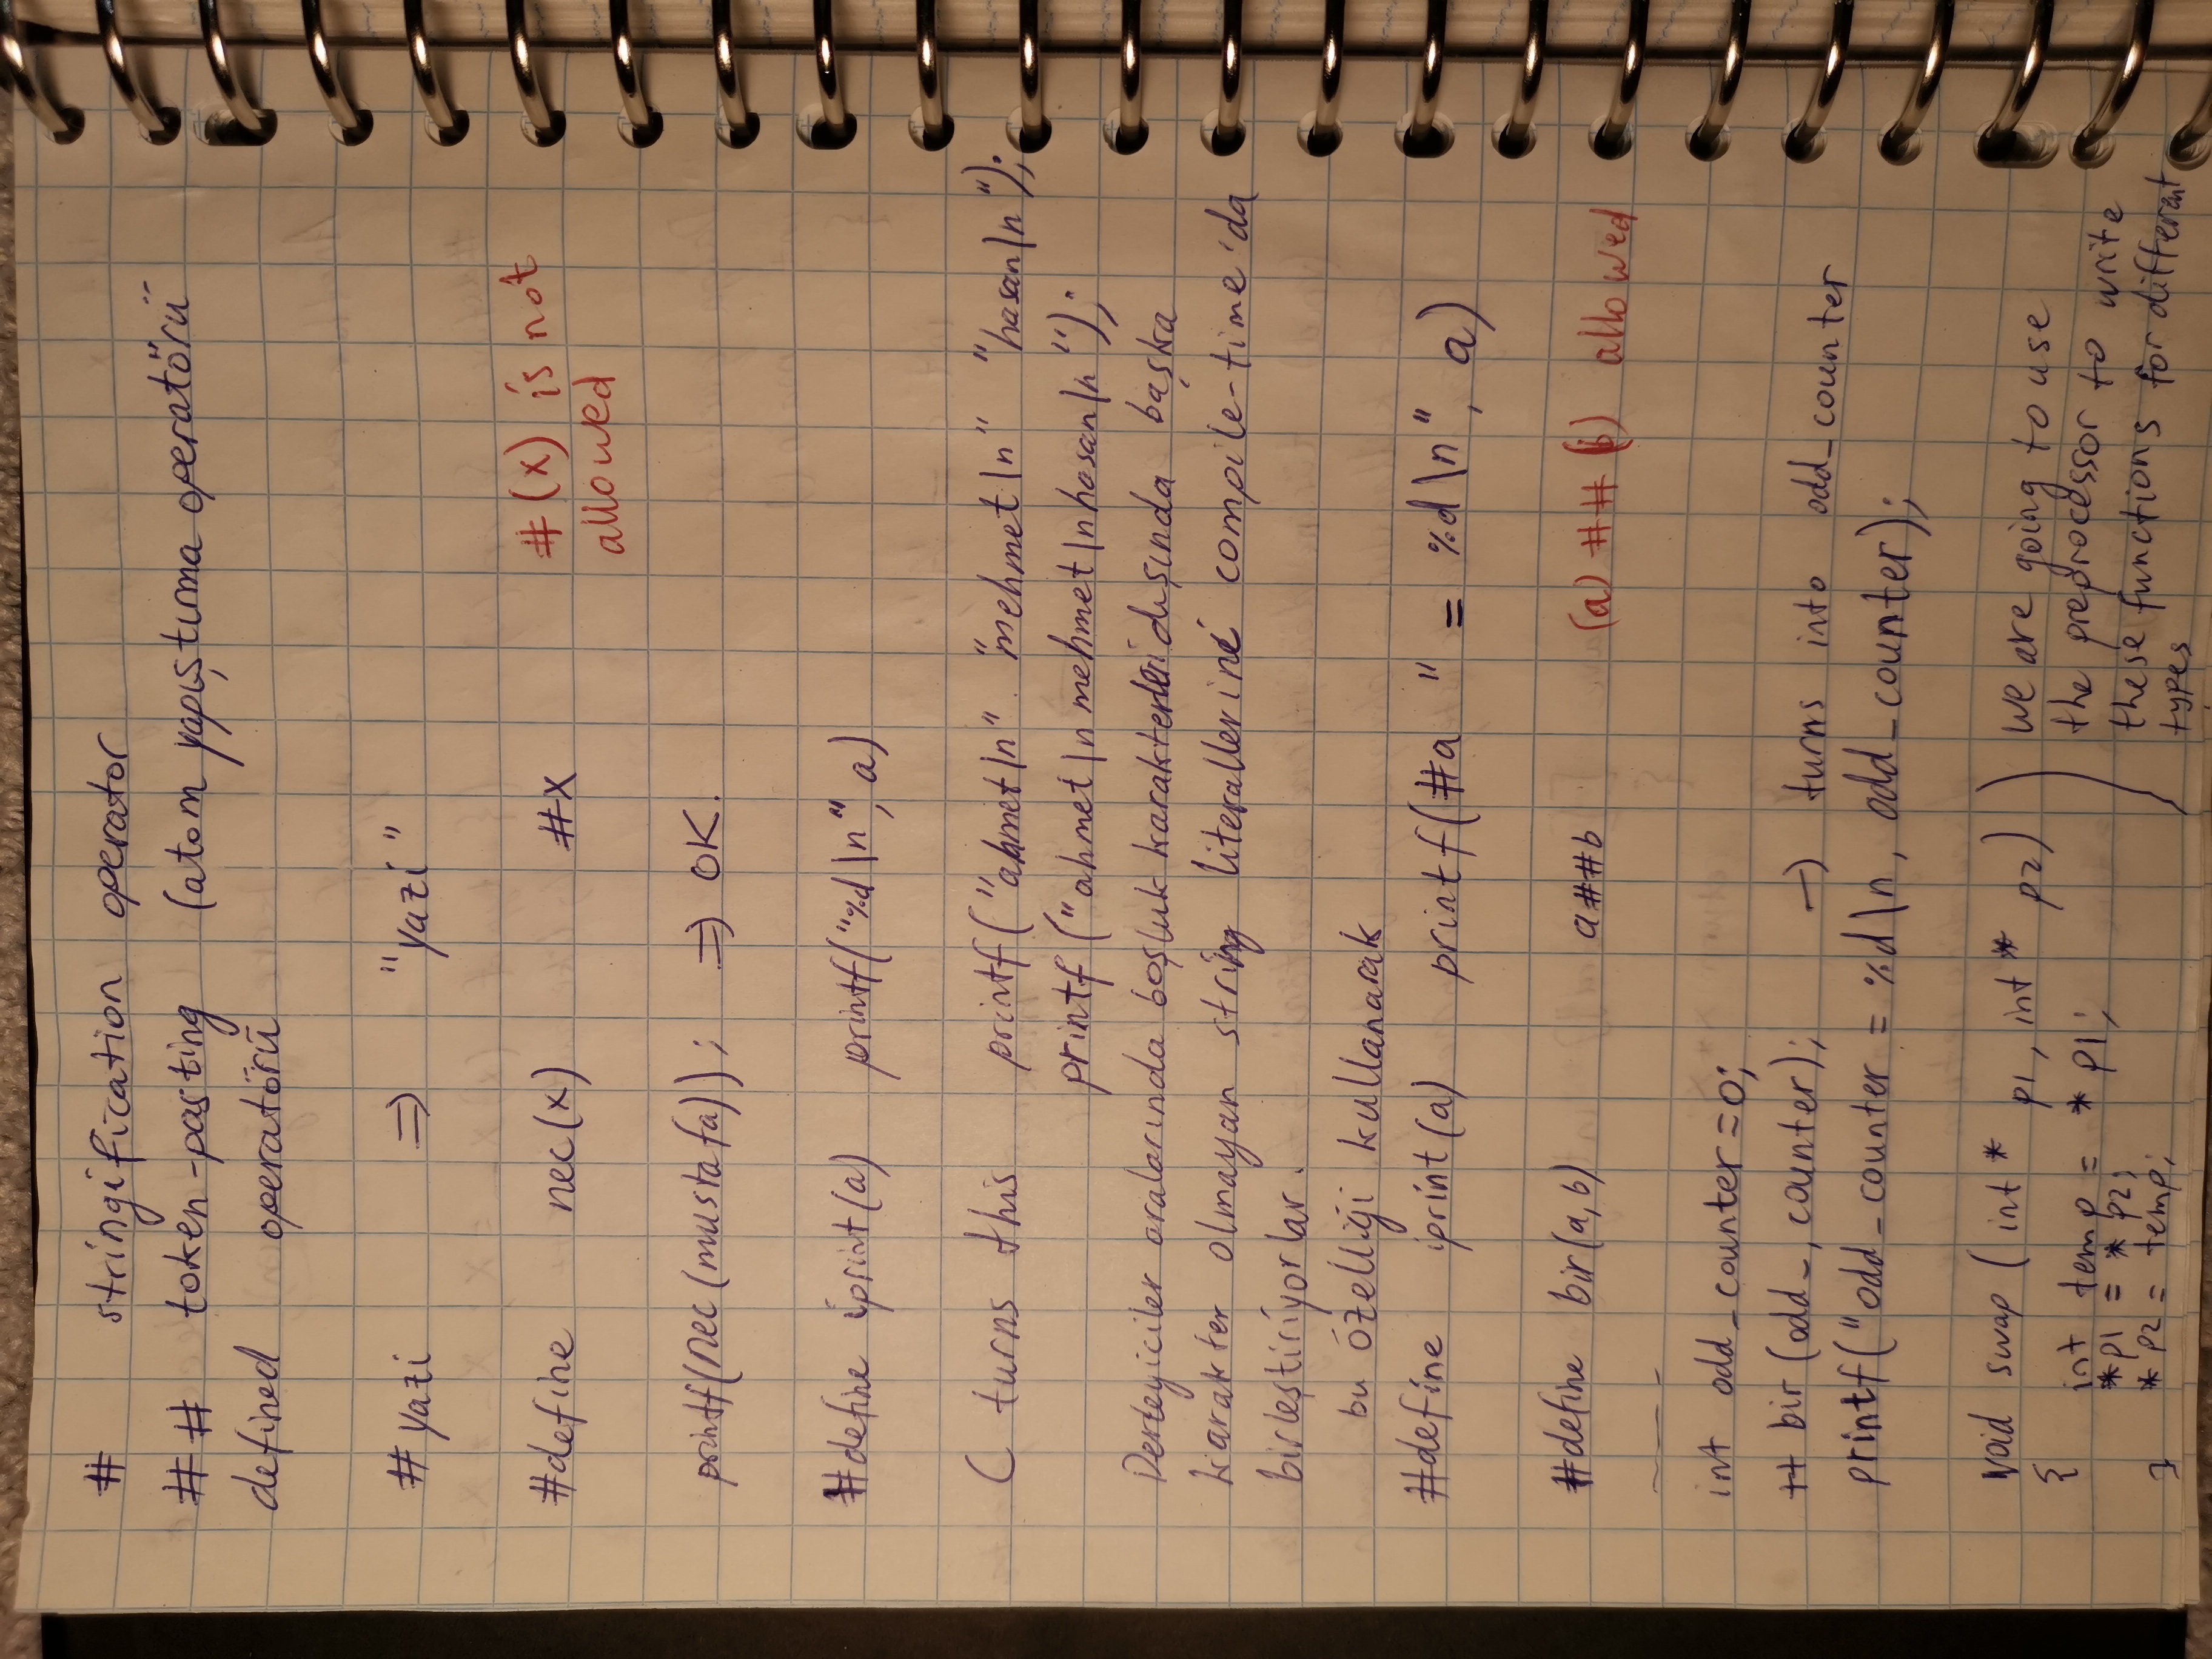 # stringification operator
## token-pasting (atom yapıştırma operatörü
defined operatörü
#yazi ⇒ "yazi"
#define nec(x) #x #(x) is not
allowed
printf(nec(mustafa)); ⇒ OK.
#define iprint(a) printf("%d\n", a)
C turns this printf("ahmet\n" "mehmet\n" "hasan\n");
printf("ahmet\nmehmet\nhasan\n");
Derleyiciler aralarında boşluk karakterleri dışında başka
karakter olmayan string literallerini compile-time'da
birleştiriyorlar.
bu özelliği kullanarak
#define iprint(a) printf(#a " = %d\n", a)
#define bir(a,b) a##b (a)##(b) allowed
int odd_counter=0;
++ bir(odd_, counter); → turns into odd_counter
printf("odd_counter = %d\n, odd_counter);
void swap (int* p1, int* p2)
{
int temp = *p1;
*p1 = *p2;
*p2 = temp;
}
we are going to use
the preprocessor to write
these functions for different
types